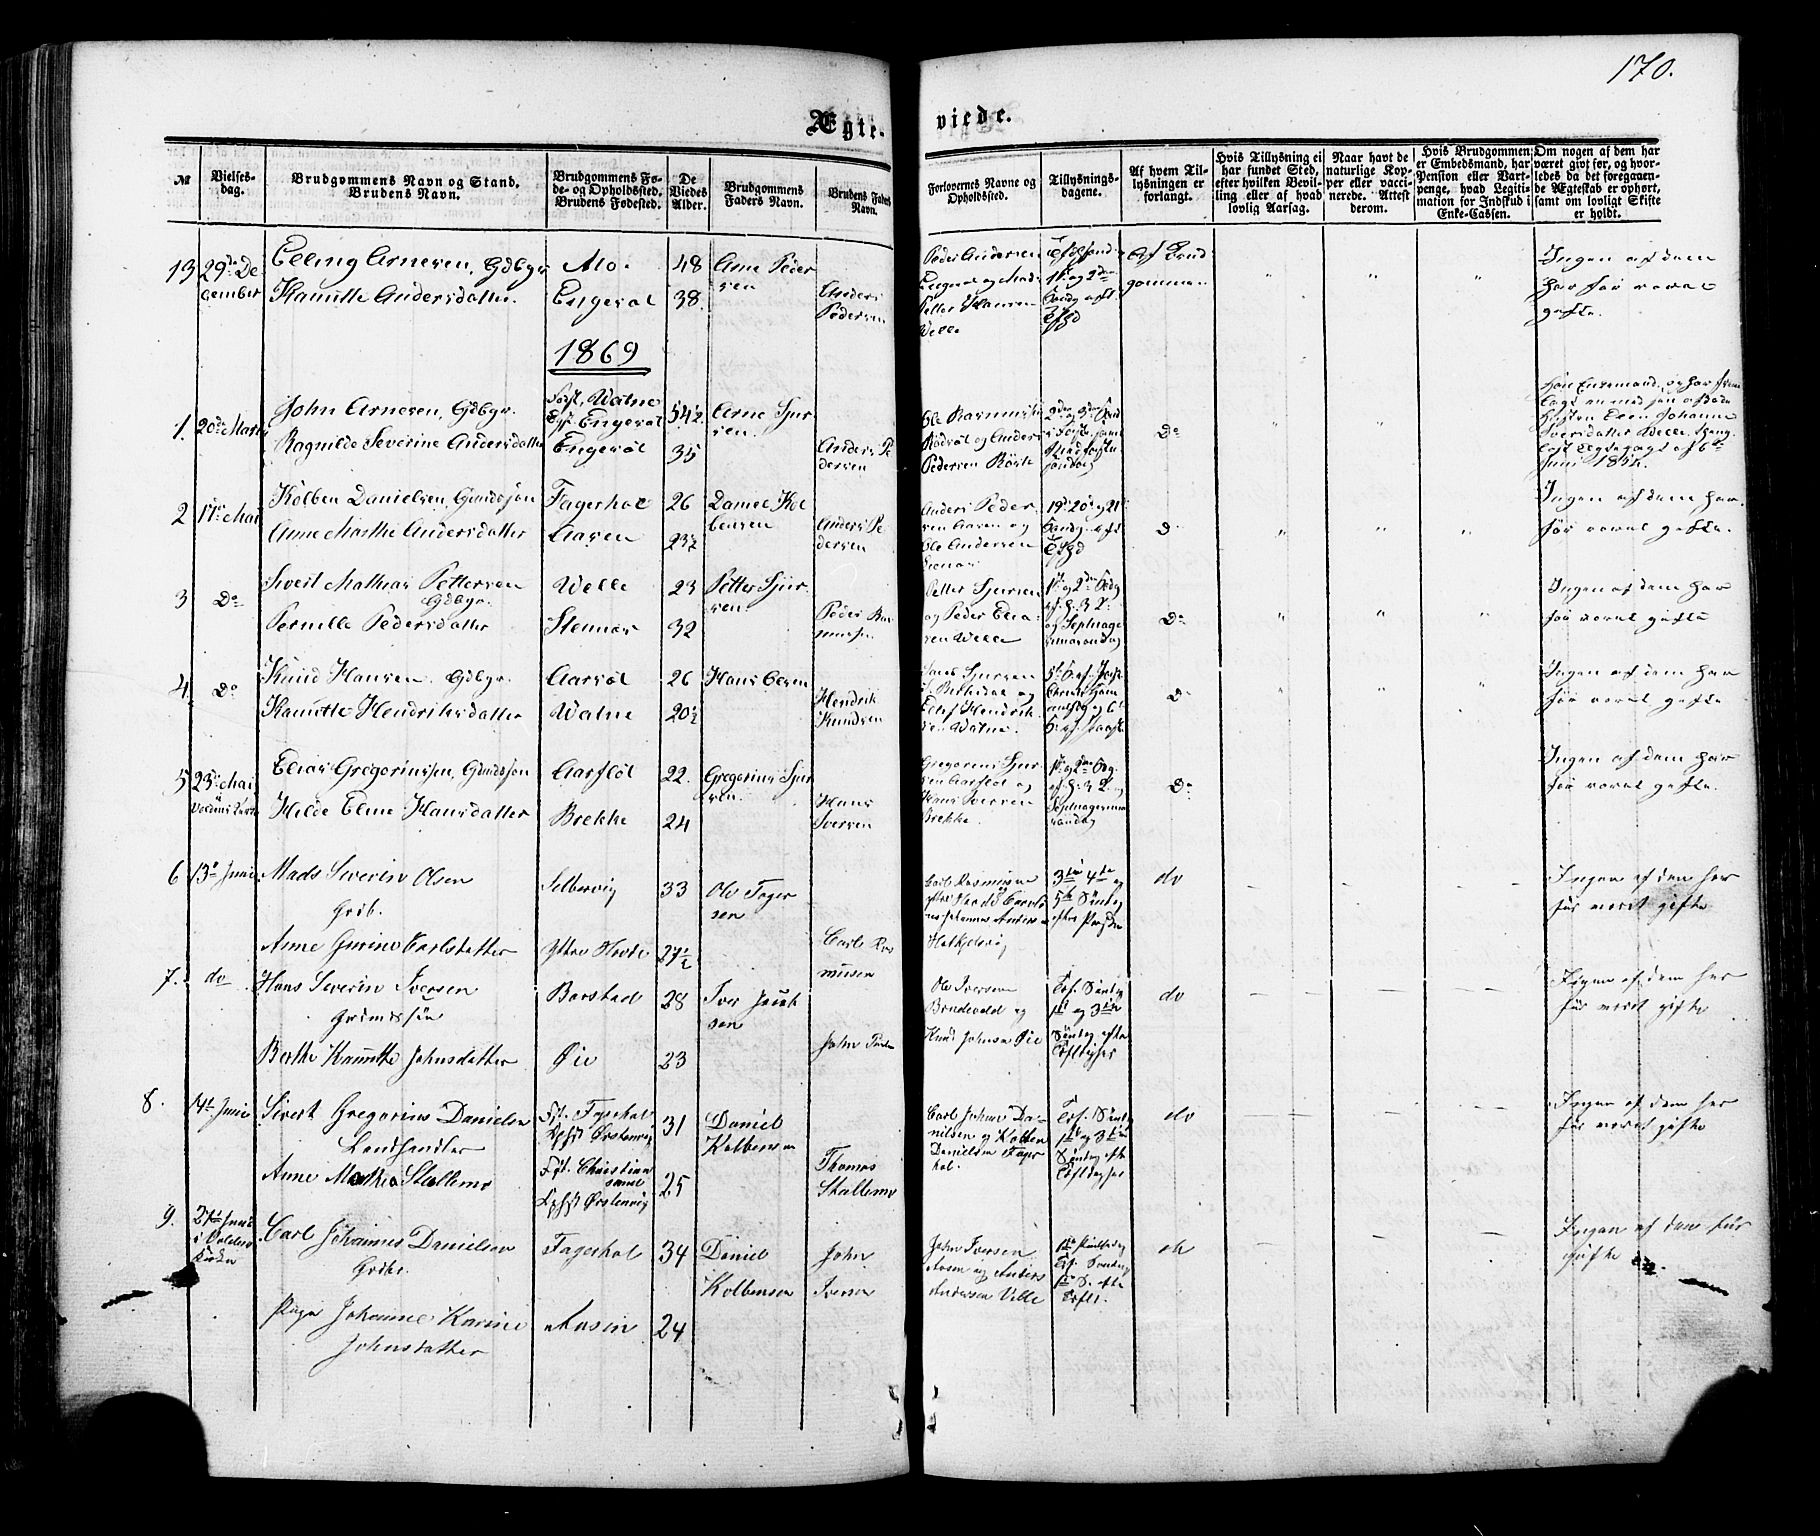 170.
Ægte- viede.
№
Vielses-
dag.
Brudgommens Navn og Stand.
Brudens Navn.
Brudgommens Fø-
de- og Opholdssted.
Brudens Fødested.
De
Viedes
Alder.
Brudgommens
Faders Navn.
Brudens Faders
Navn.
Forlovernes Navne og
Opholdssted.
Tillysnings-
dagene.
Af hvem Til-
lysningen er
forlangt.
Hvis Tillysning ei
har fundet Sted,
efter hvilken Bevil-
ling eller af hvad
lovlig Aarsag.
Naar havt de
naturlige Kop-
per eller vacci-
nerede. Attest
derom.
Hvis Brudgommen
er Embedsmand, har
Pension eller Vart-
penge, hvad Legiti-
mation for Indskud i
Enke-Cassen.
Om nogen af dem har
været gift før, og hvor-
ledes da det foregaaen-
de Ægteskab er ophørt,
samt om lovligt Skifte
er holdt.
13 29de De
cember
Elling Arnesen, Gdbgr
Kanutte Andersdatter.
Mo.
Engesæt
48
38.
Arne Peder
sen
Anders
Pedersen
Peder Andersen
Engesæt og Mads
Petter Hansen
Welle
1ste og 2den
Søndag eft.
Af Brud
gommen
Ingen af dem
har før været
gifte.
1869
1. 20de Marts
John Arnesen, Gdbgr.
Ragnilde Severine Andersdatter
Født, Watne
Engesæt
Engesæt
54½
35
Arne Sjur
sen.
Anders Pe
dersen
Ole Rasmussen
og Anders
Pedersen
Do
Han Enkemand, og har frem
Johanne
Iversdatter Welle
Juni
2 17de Mai
Kolben Danielsen, Gmdssøn
Anne Marthe Andersdatter
Fagerhol
Aasen
26
23½
Daniel Kol
bensen
Anders Pe
dersen
Anders Peder
sen Aasen og
Ole Andersen
Stennes
19de 20de og 21de
Søndg. eft.
Do
Ingen af dem har
før været gifte.
3 Do
Sivert Mathias Pettersen
Gdbgr.
Pernille Pedersdatter
Welle
Stennes
23
32
Petter Sjur
sen
Peder Ras
mussen
Petter Sjursen
og Peder Elia-
sen Welle
og Septuage
simasøndag
Do
Ingen af dem har
før været gifte
4. Do
Knud Hansen. Gdbgr.
Kanutte Hendriksdatter
Aarset
Watne
26
20½
Hans Olsen
Hendrik
Knudsen
og
Hendrik
sen Watne
Do
Ingen af dem har
før været gifte
5 23de Mai
i
Voldens Kirke
Elias Gregoriussen, Gmdssøn
Hilde Eline Hansdatter
Aarflot
Brekke
22.
24
Gregorius Sjur
sen.
Hans
Iversen
Gregorius Sjur
sen Aarflot og
Hans Iversen
Brekke.
Septuagesima
søndag
Do
Ingen af dem har
før været gifte.
6 13de Juni
Mads Severin Olsen
Grdb.
Anne Gurine Carlsdatter
Selbervig
Ytre Hovde
33
27½
Ole Tager
sen
Carl Ras
musen
Carl Rasmusen
ytre Hovde
Johannes Anders
3die 4de og
5te Søndag
efter Paaske
do
Ingen af dem har
før været gifte
7. do
Hans Severin Iversen
Grdmdssøn
Berthe Kanutte Johnsdatter
Barstad
Øie
28
23
Iver Jacob
sen
John
Ole Iversen
Brudevold og
Knud Johnsen Øie
Søndag
1ste og 3die
Søndag efter
do
Ingen af dem har
før været gifte
8. 14de Juni
Sivert Gregorius Danielsen
Landhandler
Anne Mathea Stallemo
Fød. Fagerhol
Ophst Ørstenvig
Fød. Christian
sund
Ophst Ørstenvig
31
25
Daniel
Kolbensen
Thomas
Stallemo
Carl Johan Da-
nielsen og Kolben
Danielsen Fager
hol.
1ste og 3die
Søndag efter
do
Ingen af dem har
før været gifte
9. 27de Juni
i Voldens
Kirken
Carl Johannes Danielsen
Grdbr.
Pige Johanne Karine
Johnsdatter
Fagerhol
Aasen
34
24
Daniel
Kolbensen
John
Iversen
John Iversen
Aasen og Anders
Andersen Velle
do
Ingen af dem før
gifte